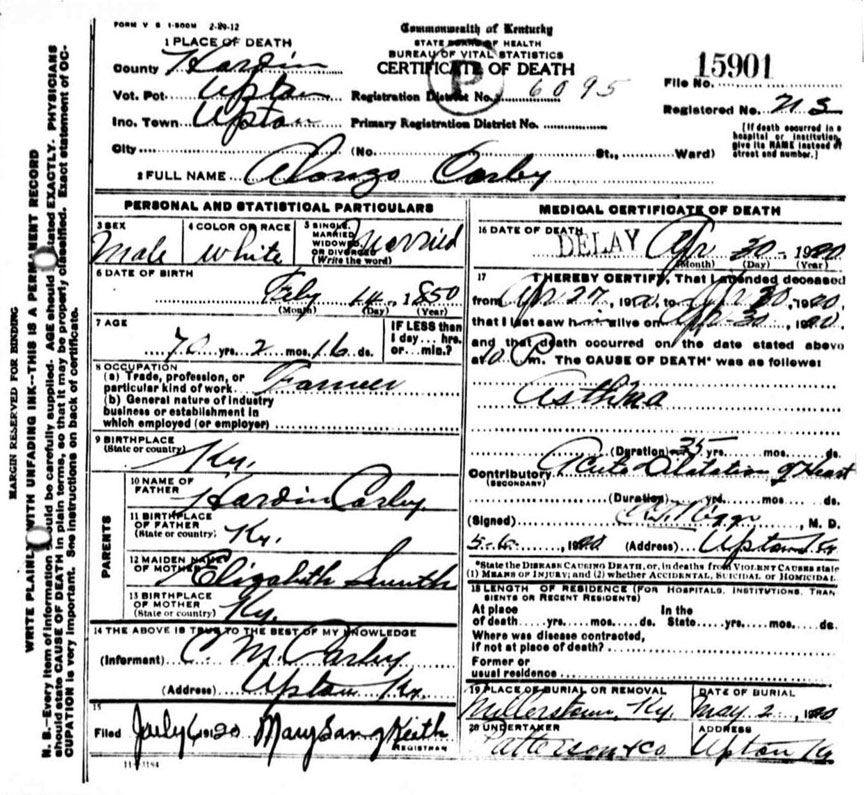 FORM V S 1-500M 2-29-12
Commonwealth of Kentucky
STATE BOARD OF HEALTH
BUREAU OF VITAL STATISTICS
CERTIFICATE OF DEATH
1 PLACE OF DEATH
County Hardin
Vot. Pct. Upton
Inc. Town Upton
City
Registration District No. 6095
Primary Registration District No.
(No. St., Ward)
15901
File No.
Registered No.
[If death occurred in a hospital or institution, give its NAME instead of street and number.]
2 FULL NAME Alonzo Corby
PERSONAL AND STATISTICAL PARTICULARS
3 SEX Male
4 COLOR OR RACE White
5 SINGLE, MARRIED, WIDOWED, OR DIVORCED (Write the word) Married
6 DATE OF BIRTH Feby 14, 1850
(Month) (Day) (Year)
7 AGE 70 yrs. 2 mos. 16 ds.
IF LESS than 1 day... hrs. or... min.?
8 OCCUPATION
(a) Trade, profession, or particular kind of work Farmer
(b) General nature of industry business or establishment in which employed (or employer)
9 BIRTHPLACE (State or country) Ky.
PARENTS
10 NAME OF FATHER Hardin Corby
11 BIRTHPLACE OF FATHER (State or country) Ky.
12 MAIDEN NAME OF MOTHER Elizabeth Smith
13 BIRTHPLACE OF MOTHER (State or country) Ky.
14 THE ABOVE IS TRUE TO THE BEST OF MY KNOWLEDGE
(Informant) C M Corby
(Address) Upton Ky.
15
Filed July 6, 1920
REGISTRAR
11-3184
MEDICAL CERTIFICATE OF DEATH
16 DATE OF DEATH DELAY Apr 30 - 1920
(Month) (Day) (Year)
17 I HEREBY CERTIFY, That I attended deceased
from Apr 27, 1920, to Apr 30, 1920.
that I last saw him alive on Apr 30, 1920.
and that death occurred on the date stated above
at 10 P m. The CAUSE OF DEATH* was as follows:
Asthma
(Duration) 35 yrs. mos. ds.
Contributory Acute Dilatation of Heart
(SECONDARY)
(Duration) yrs. mos. ds.
(Signed) M. D.
5-6-, 1920 (Address) Upton Ky
*State the DISEASE CAUSING DEATH, or, in deaths from VIOLENT CAUSES state
(1) MEANS OF INJURY; and (2) whether ACCIDENTAL, SUICIDAL OR HOMICIDAL.
18 LENGTH OF RESIDENCE (FOR HOSPITALS, INSTITUTIONS, TRANSIENTS OR RECENT RESIDENTS)
At place of death yrs. mos. ds. In the State yrs. mos. ds.
Where was disease contracted, if not at place of death?
Former or usual residence
19 PLACE OF BURIAL OR REMOVAL Millerstown, Ky.
DATE OF BURIAL May 2, 1920
20 UNDERTAKER Patterson & Co
ADDRESS Upton Ky
MARGIN RESERVED FOR BINDING
WRITE PLAINLY WITH UNFADING INK--THIS IS A PERMANENT RECORD
N. B.--Every item of information should be carefully supplied. AGE should be stated EXACTLY. PHYSICIANS
should state CAUSE OF DEATH in plain terms, so that it may be properly classified. Exact statement of OC-
CUPATION is very important. See instructions on back of certificate.